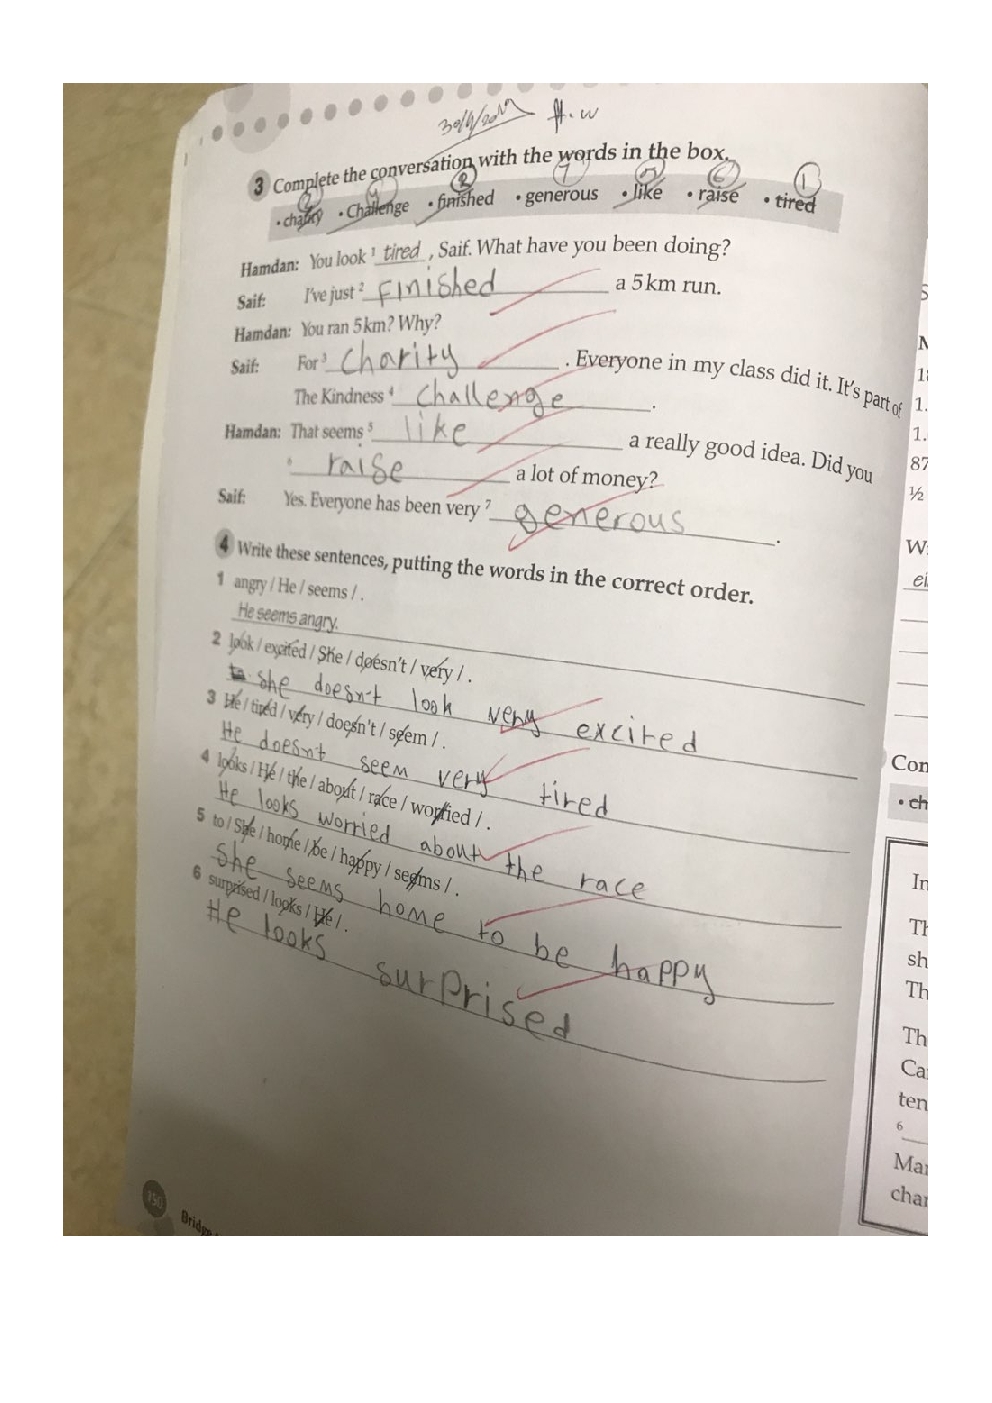 H.W
3 Complete the conversation with the words in the box.
2 7 6 1
• charity • Challenge • finished • generous • like • raise • tired
Hamdan: You look ¹ tired , Saif. What have you been doing?
Saif: I've just ² finished a 5km run.
Hamdan: You ran 5km? Why?
Saif: For ³ charity . Everyone in my class did it. It's part of
The Kindness ⁴ challenge .
Hamdan: That seems ⁵ like a really good idea. Did you
raise a lot of money?
Saif: Yes. Everyone has been very ⁷ generous .
4 Write these sentences, putting the words in the correct order.
1 angry / He / seems / .
He seems angry.
2 look / excited / She / doesn't / very / .
she doesn't look very excited
3 He / tired / very / doesn't / seem / .
He doesn't seem very tired
4 looks / He / the / about / race / worried / .
He looks worried about the race
5 to / She / home / be / happy / seems / .
She seems home to be happy
6 surprised / looks / He / .
He looks surprised
150
W
Con
• ch
In
Th
sh
Th
Th
Ca
ten
6
Mar
char